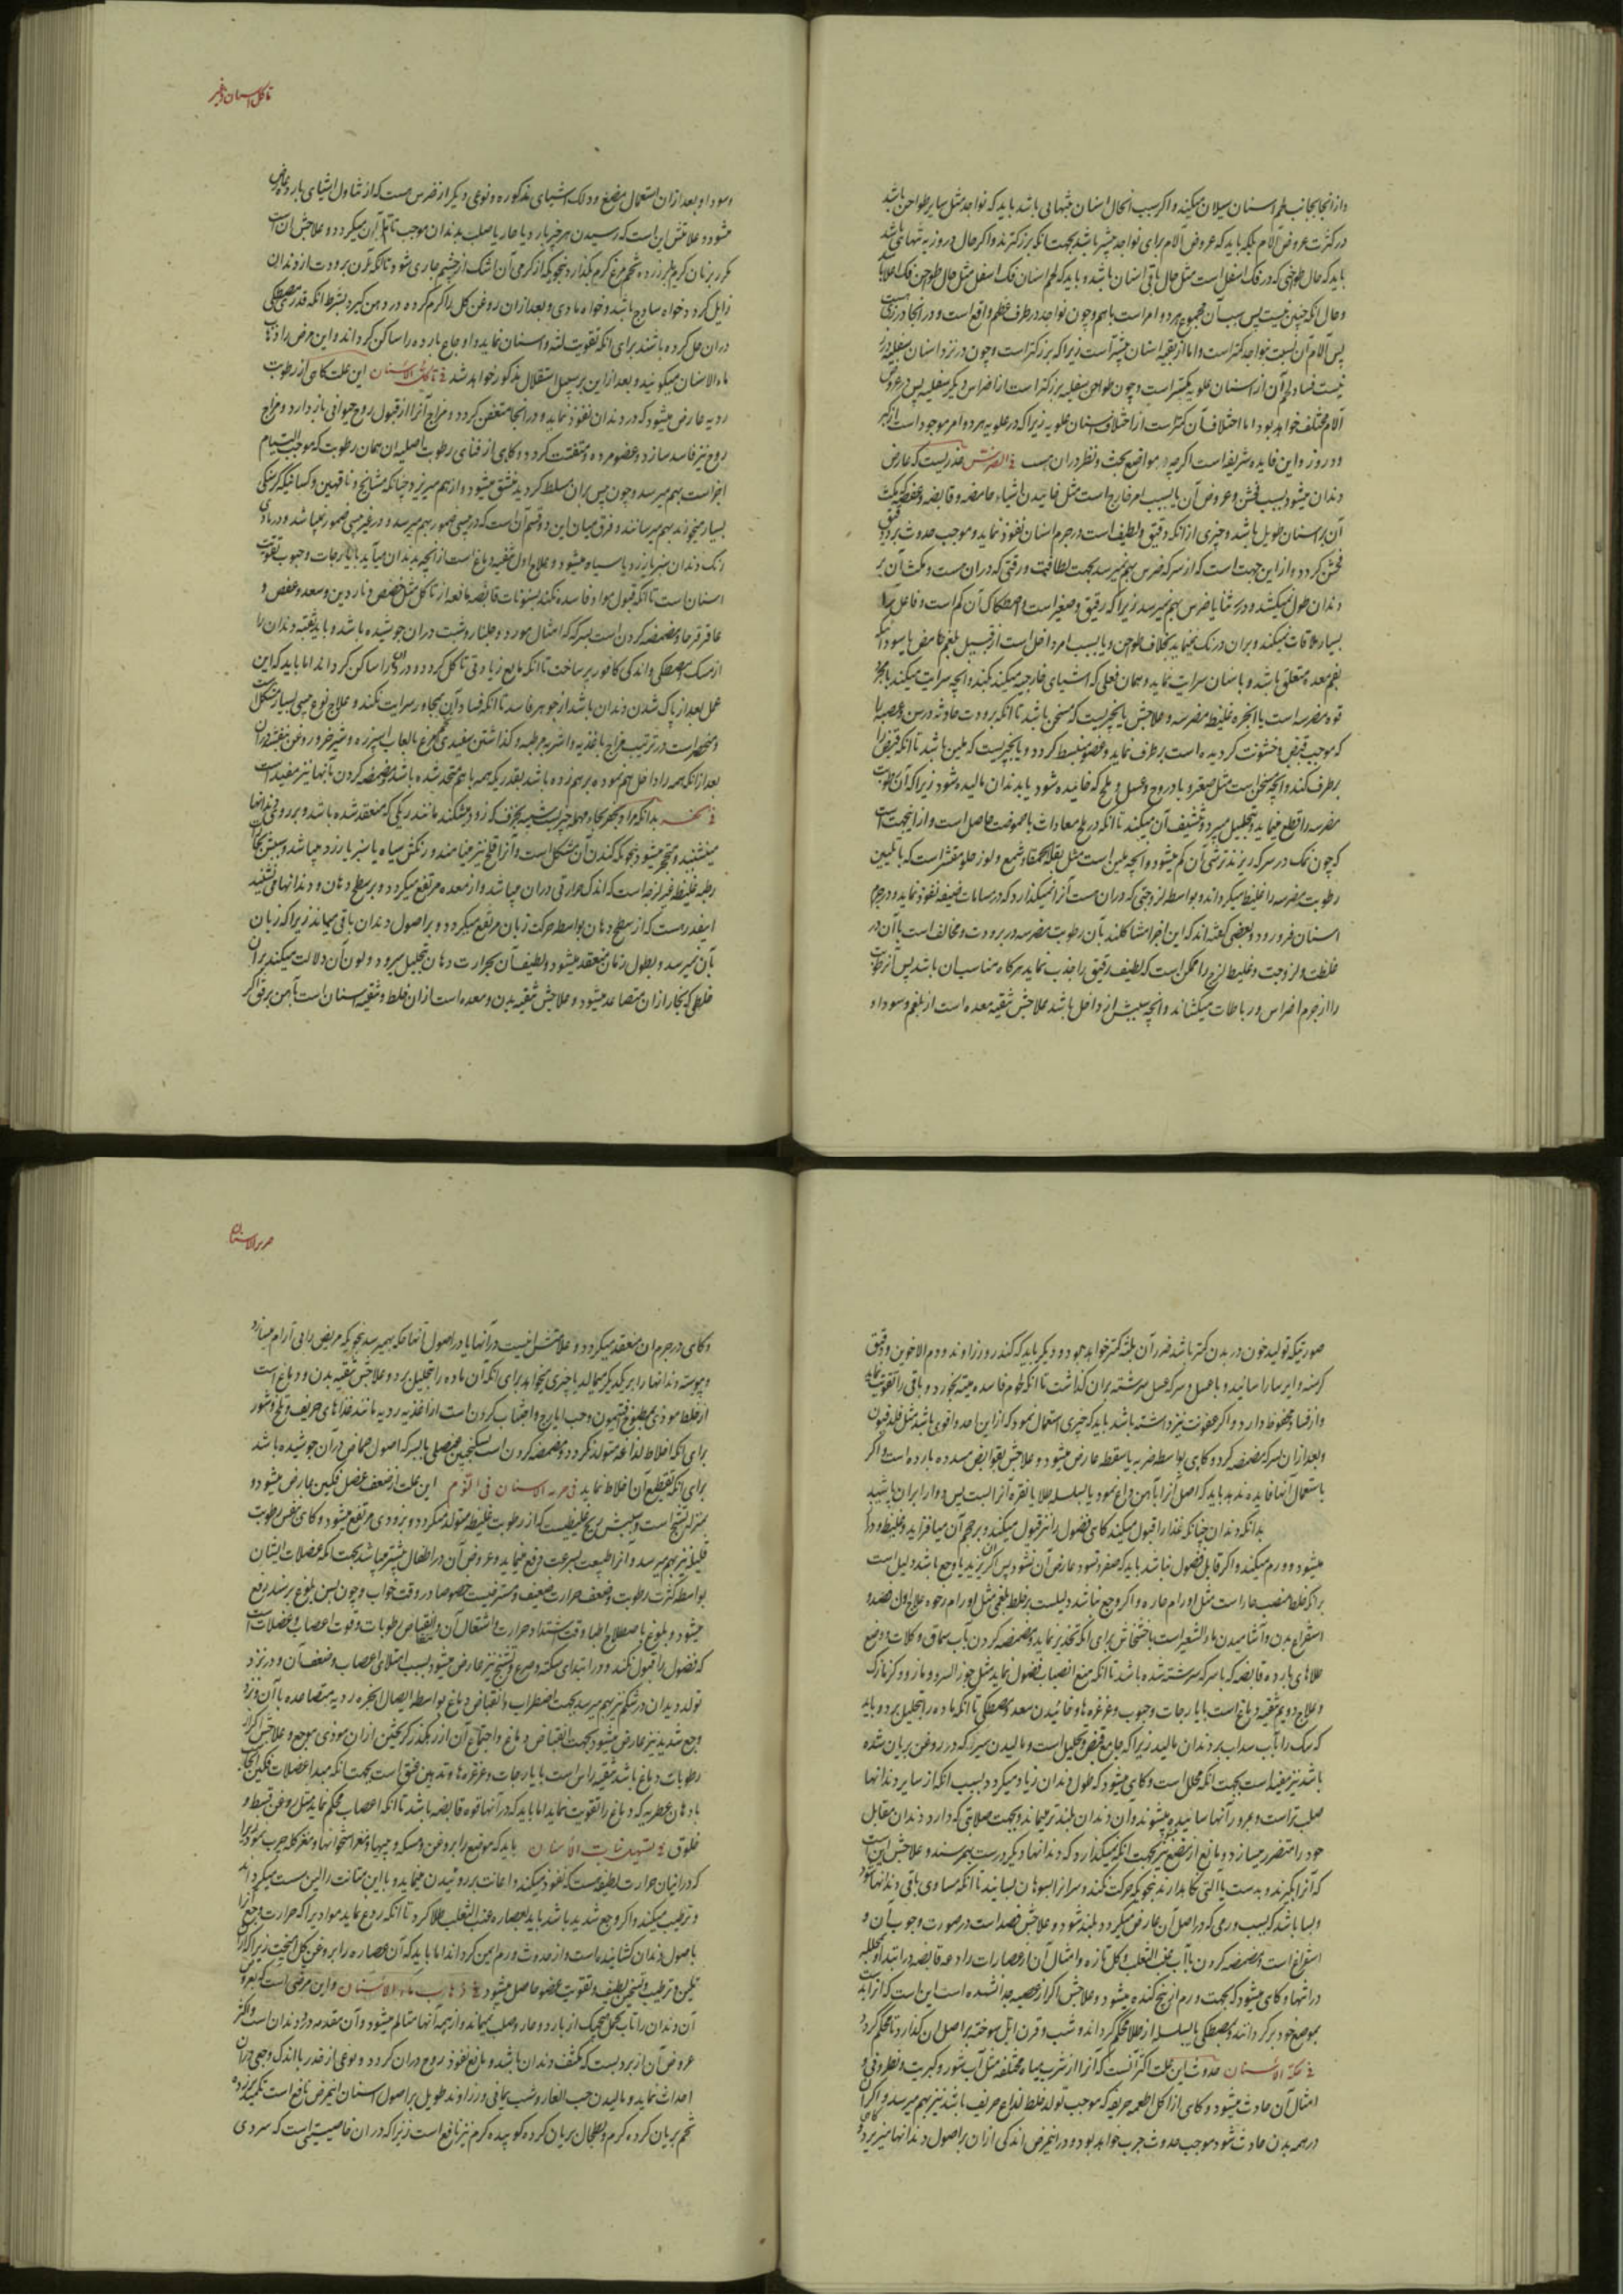 و از انجا بجانب لحم اسنان سیلان میکند و اکر سبب انحلال اسنان باشد باید که نواجد مثل سایر طواحن باشد
در کثرت عروض آلام بلکه باید که عروض آلام برای نواجد بیشتر باشد بجهت انکه بزرکترند و اکر حال در وز به تنهایی باشد
باید که حال طواحنی که در فک اسفل است مثل حال باقی اسنان باشد و باید که لحم اسنان فک اسفل مثل حال طواحن فک اعلا باشد
و حال انکه چنین نیست پس سبب آن مجموع هر دو امر است باهم و چون نواجد در طرف عظم واقع است و در انجا
پس آلام آن نسبت بنواجد کمتر است و اما از بقیه اسنان بیشتر است زیرا که بزرکتر است و چون در نزد اسنان سفلیه
نیست فساد لحم آن از اسنان علویه کمتر است و چون طواحن سفلیه بزرکتر است از اضراس دیکر سفلیه پس در عروض
آلام مختلف خواهد بود اما اختلاف آن کمتر است از اختلاف اسنان علویه زیرا که در علویه هر دو امر موجود است
و در وز و این فایده شریف است اکرچه در مواضع بحث و نظر در ان هست فی الضرس خدریست که عارض
دندان میشود بسبب خشن و عروض آن یا بسبب امر خارج است مثل خائیدن اشیاء حامضه و قابضه و عفصه که مکث
آن بر اسنان طویل باشد و چیزی از انکه دقیق و لطیف است در جرم اسنان نفوذ نماید و موجب حدوث برد و
خشن کردد و از این جهت است که از سرکه ضرس بهم نمیرسد بجهت لطافت و رقتی که در ان هست و مکث آن بر
دندان طول نمیکشد و در ثنایا ضرس بهم نمیرسد زیرا که رقیق و صغیر است و اصطکاک آن کم است و فاعل را
بسیار ملاقات نمیکند و بر ان درنک نمینماید بخلاف طواحن و یا بسبب امر داخل است از قبیل بلغم حامض یا سودا
بفم معده متعلق باشد و باسنان سرایت نماید و همان فعلی که اشیای خارجیه میکند بکند و انچه سرایت میکند یا مجرد
قوه مضرسه است یا ابخره غلیظه مضرسه و علاجش یا بچیزیست که مسخن باشد تا انکه برودت حادثه در سن و عصبه را
که موجب قبض و خشونت کردیده است برطرف نماید و عضو منبسط کردد و یا بچیزیست که ملین باشد تا انکه قبض را
برطرف کند و انچه مسخن است مثل صعتر و بادروج و عسل و ملح که خائیده شود یا بدندان مالیده شود زیرا که آن رطوبت
مضرسه را قطع مینماید و تحلیل میبرد و تنشیف آن میکند تا انکه در ملح معادات با حموضت حاصل است و از اینجهت است
که چون نمک در سرکه ریزند ترشی آن کم میشود و انچه ملین است مثل بقلة الحمقاء و شمع و لوز حلو مقشر است که با تلیین
رطوبت مضرسه را غلیظ میکرداند و بواسطه لزوجتی که در ان هست آنرا نمیکذارد که در مسامات ضیقه نفوذ نماید و در جرم
اسنان فرو رود و بعضی کفته اند که این اجزا مشاکلند بآن رطوبت مضرسه در برودت و مخالف است با آن در
غلظت و لزوجت و غلیظ لزج را ممکن است که لطیف رقیق را جذب نماید هرکاه مناسب ان باشد پس آن رطوبت
را از جرم اضراس و رباطات میکشاند و انچه سببش از داخل باشد علاجش تنقیه معده است از بلغم و سودا و
تاکل اسنان و غیر
و سودا و بعد از ان استعمال مضغ و دلک اشیای مذکوره و نوعی دیکر از ضرس هست که از تناول اشیای بارد عارض
میشود و علامتش این است که رسیدن هر چیز بارد یا حار یا صلب بدندان موجب تالم آن میکردد و علاجش ان است
مکرر بر نان کرم یا زرده تخم مرغ کرم بکذارد بنحویکه از کرمی آن اشک از چشم جاری شود تا انکه آن برودت از دندان
زایل کردد خواه ساذج باشد و خواه مادی و بعد از ان روغن کل را کرم کرده در دهن کیرد بشرط انکه قدری مصطکی
در ان حل کرده باشند برای انکه تقویت لثه و اسنان نماید و اوجاع بارده را ساکن کرداند و این مرض را ذهاب
ماء الاسنان میکویند و بعد از این بر سبیل استقلال مذکور خواهد شد فی تاکل الاسنان این علت کاهی از رطوبت
ردیه عارض میشود که در دندان نفوذ نماید و در انجا متعفن کردد و مزاج آنرا از قبول روح حیوانی باز دارد و مزاج
روح نیز فاسد سازد و عضو مرده و متفتت کردد و کاهی از فنای رطوبت اصلیه ان همان رطوبت که موجب التیام
اجزاست بهم میرسد و چون یبس بر ان مسلط کردید منشق میشود و از هم میریزد چنانکه مشایخ و ناقهین و کسانیکه کرسنکی
بسیار میخورند بهم میرسانند و فرق میان این دو قسم آن است که در یبسی ضمور بهم میرسد و در غیر یبسی ضمور نمیباشد و در مادی
رنک دندان سبز یا زرد یا سیاه میشود و علاج اول تنقیه دماغ است از انچه بدندان میآید بایارجات و حبوب تقویت
اسنان است تا انکه قبول مواد فاسده نکند بسنونات قابضه مانعه از تاکل مثل حضض و ناردین و سعد و عفص و
عاقرقرحا و مضمضه کردن است بسرکه که امثال مورد و جلنار و شبت در ان جوشیده باشد و باید ثقبه دندان را
از مسک و مصطکی و اندکی کافور پر ساخت تا انکه مانع زیادتی تاکل کردد و درد آنرا ساکن کرداند اما باید که این
عمل بعد از پاک شدن دندان باشد از جوهر فاسد تا انکه فساد آن بمجاور سرایت نکند و علاج نوع یبسی بسیار مشکل است
و منحصر است در ترطیب مزاج باغذیه و اشربه مرطبه و کذاشتن سفیدی تخم مرغ با لعاب اسپرزه و شیر خر و روغن بنفشه بر ان
بعد از انکه همه را داخل هم نموده برهم زده باشد بقدریکه همه باهم متحد شده باشد و مضمضه کردن بآنها نیز مفید است
فی بدانکه مراد حفر بحاء مهمله چیزیست شبیه بخزف که زود میشکند مانند ریکی که منعقد شده باشد و بر روی دندانها
مینشیند و متحجر میشود بنحویکه کندن آن مشکل است و آنرا قلح نیز مینامند و رنکش سیاه یا سبز یا زرد میباشد و سببش
رطوبت غلیظه غیر لزجه است که اندک حرارتی در ان میباشد و از معده مرتفع میکردد و بر سطح دهان و دندانها مینشیند
اینقدر هست که از سطح دهان بواسطه حرکت زبان مرتفع میکردد و بر اصول دندان باقی میماند زیرا که زبان
بآن نمیرسد و بطول زمان منعقد میشود و لطیف آن بحرارت دهان تحلیل میرود و لون آن دلالت میکند بر ان
خلطی که بخار از ان متصاعد میشود و علاجش تنقیه بدن و معده است از ان خلط و تنقیه اسنان است بآهن برفق اکر
صورتیکه تولید خون در بدن کمتر باشد ضرر آن بلثه کمتر خواهد بود و دیکر باید که کندر و زراوند و دم الاخوین و دقیق
کرسنه و ایرسا را سائید و با عسل و سرکه عسل سرشته بر ان کذاشت تا انکه لحوم فاسده میته بخورد و باقی را تقویت نماید
و از فساد محفوظ دارد و اکر عفونت نیز داشته باشد باید که چیزی استعمال نمود که از این احد و اقوی باشد مثل قلدفیون
و بعد از ان بسرکه مضمضه کرد و کاهی بواسطه ضربه یا سقطه عارض میشود و علاجش بقوابض مسدده بارده است و اکر
باستعمال آنها فایده ندهد باید که اصل آنرا بآهن داغ نمود یا بسلسله طلا یا نقره آنرا بست پس دوا را بر ان پاشید
بدانکه دندان چنانکه غذا را قبول میکند کاهی فضول را نیز قبول میکند و بر حجم آن میافزاید و غلیظ و دراز
میشود و ورم میکند و اکر قابل فضول نباشد باید که صفرة و سود عارض آن نشود پس اکر بزرک با وجع باشد دلیل است
بر انکه خلط منصب حار است مثل اورام حاره و اکر وجع نباشد دلیلست بر خلط بلغمی مثل اورام رخوه علاج اول فصد و
استفراغ بدن و آشامیدن ماء الشعیر است با خشخاش برای انکه تخدیر نماید و مضمضه کردن بآب سماق و کلاب و وضع
طلاهای بارده قابضه که با سرکه سرشته شده باشد تا انکه منع انصباب فضول نماید مثل جوز السرو و مازو و کزمازک
و علاج دویم تنقیه دماغ است بایارجات و حبوب و غرغره ها و خائیدن سعد و مصطکی تا انکه ماده را تحلیل برد و باید
که نمک را بآب سداب بر دندان مالید زیرا که جامع قبض و تحلیل است و مالیدن سیر که در روغن بریان شده
باشد نیز مفید است بجهت انکه محلل است و کاهی میشود که طول دندان زیاد میکردد بسبب انکه از سایر دندانها
صلب تر است و بمرور آنها سائیده میشوند و آن دندان بلندتر میماند و بجهت صلابتی که دارد دندان مقابل
خود را متضرر میسازد و مانع از مضغ نیز بجهت انکه نمیکذارد که دندانها دیکر درست بهم رسند و علاجش این است
که آنرا بکیرند بدست یا آلتی نکاهدارند بنحویکه حرکت نکند و سر آنرا بسوهان بسایند تا انکه مساوی باقی دندانها شود
و بسا باشد که بسبب ورمی که در اصل آن عارض میکردد بلند شود و علاجش فصد است در صورت وجوب آن و
استفراغ است و مضمضه کردن بآب عنب الثعلب و کل تازه و امثال آن از عصارات رادعه قابضه در ابتدا و محلله
در انتها و کاهی میشود که بجهت ورم از بیخ کنده میشود و علاجش اکر از عصبه جدا نشده است این است که آنرا
بموضع خود برکردانند و بمصطکی یا بسلسله از طلا محکم کرداند و شب و قرن ایل سوخته بر اصل ان کذارد تا محکم کردد
فی حکة الاسنان حدوث این علت اکثر آنست که از شرب میاه مختلفه مثل آب شور و کبریت و نطرونی و
امثال آن حادث میشود و کاهی از اکل اطعمه حریفه که موجب تولد خلط لذاع حریف باشد نیز بهم میرسد و اکر آن
در همه بدن حادث شود موجب حدوث جرب خواهد بود و در اینمرض اندکی از ان بر اصول دندانها میریزد و کاهی
صریر الاسنان
و کاهی در جرم ان منعقد میکردد و علامتش خلیست در آنها یا در اصول آنها که بهم میرسد بنحویکه مریض را بی آرام میسازد
و پیوسته دندانها را بر یکدیکر میمالد یا چیزی بخواهد برای انکه آن ماده را تحلیل برد و علاجش تنقیه بدن و دماغ است
از خلط موذی بمطبوخ افتیمون و حب ایارج و اجتناب کردن است از اغذیه ردیه مانند غذاهای حریف و تلخ و شور
برای انکه اخلاط لذاعه متولد نکردد و مضمضه کردن است بسکنجبین عنصلی یا بسرکه اصول حماض در آن جوشیده باشد
برای انکه تقطیع آن اخلاط نماید فی صریر الاسنان فی النوم این علت از ضعف عضل فکین عارض میشود و
بمنزله تشنج است و سببش ریح غلیظیست که از رطوبت غلیظه متولد میکردد و بزودی مرتفع میشود و کاهی بنفس رطوبت
قلیله نیز بهم میرسد و از طبیعت بسرعت دفع مینماید و عروض آن در اطفال بیشتر میباشد بجهت انکه عضلات ایشان
بواسطه کثرت رطوبت و ضعف حرارت ضعیف و مسترخیست خصوصا در وقت خواب و چون بسن بلوغ برسند رفع
میشود و بلوغ باصطلاح اطبا وقت اشتداد حرارت و اشتعال آن و انقباض رطوبات و قوت اعصاب و عضلات است
که فضول را قبول نکند و در ابتدای سکته و صرع و تشنج نیز عارض میشود بسبب امتلای اعصاب و ضعف آن و در نزد
تولد دیدان در شکم نیز بهم میرسد بجهت اضطراب و انقباض دماغ بواسطه ایصال ابخره ردیه متصاعده بآن و در نزد
وجع شدید نیز عارض میشود بجهت انقباض دماغ و اجتماع آن از رهکذر کریختن از ان موذی موجع و علاجش اکر از
رطوبات دماغ باشد تنقیه راس است بایارجات و غرغره ها و تدهین عنق است بجهت انکه مبدا عضلات فکین
بادهان عطریه که دماغ را تقویت نماید اما باید که در آنها قوه قابضه باشد تا انکه اعصاب محکم نماید مثل روغن قسط و
خلوق فی تسهیل نبات الاسنان باید که موضع را بروغن و مسکه و پیهها و مغز استخوانها و مغز کله چرب نمود زیرا
که در اینان حرارت لطیفه هست که نفوذ میکند و اعانت بر روئیدن مینماید و با این متانت را لین سست میکرداند
و ترطیب میکند و اکر وجع شدید باشد باید بعصاره عنب الثعلب طلا کرد تا انکه ردع نماید موادیرا که حرارت وجع آنرا
باصول دندان کشانیده است و از حدوث ورم ایمن کرداند اما باید که آن عصاره را بروغن کل امیخت زیرا که از ان
تلیین و ترطیب و تسخین لطیف و تقویت عضو حاصل میشود فی ذهاب ماء الاسنان و این مرضی است که بعروض
آن دندان را تاب تحمل هیچیک از بارد و حار و صلب نمیماند و از همه آنها متالم میشود و آن مقدمه درد دندان است و اکثر
عروض آن از بردیست که مکثف دندان باشد و مانع نفوذ روح در ان کردد و نوعی از خدر با اندک وجعی در ان
احداث نماید و مالیدن حب الغار و شب یمانی و زراوند طویل بر اصول اسنان اینمرض نافع است تکمید بزرده
تخم بریان کرده کرم و بطحال بریان کرده کوبیده کرم نیز نافع است زیرا که در ان خاصیتی است که سردی